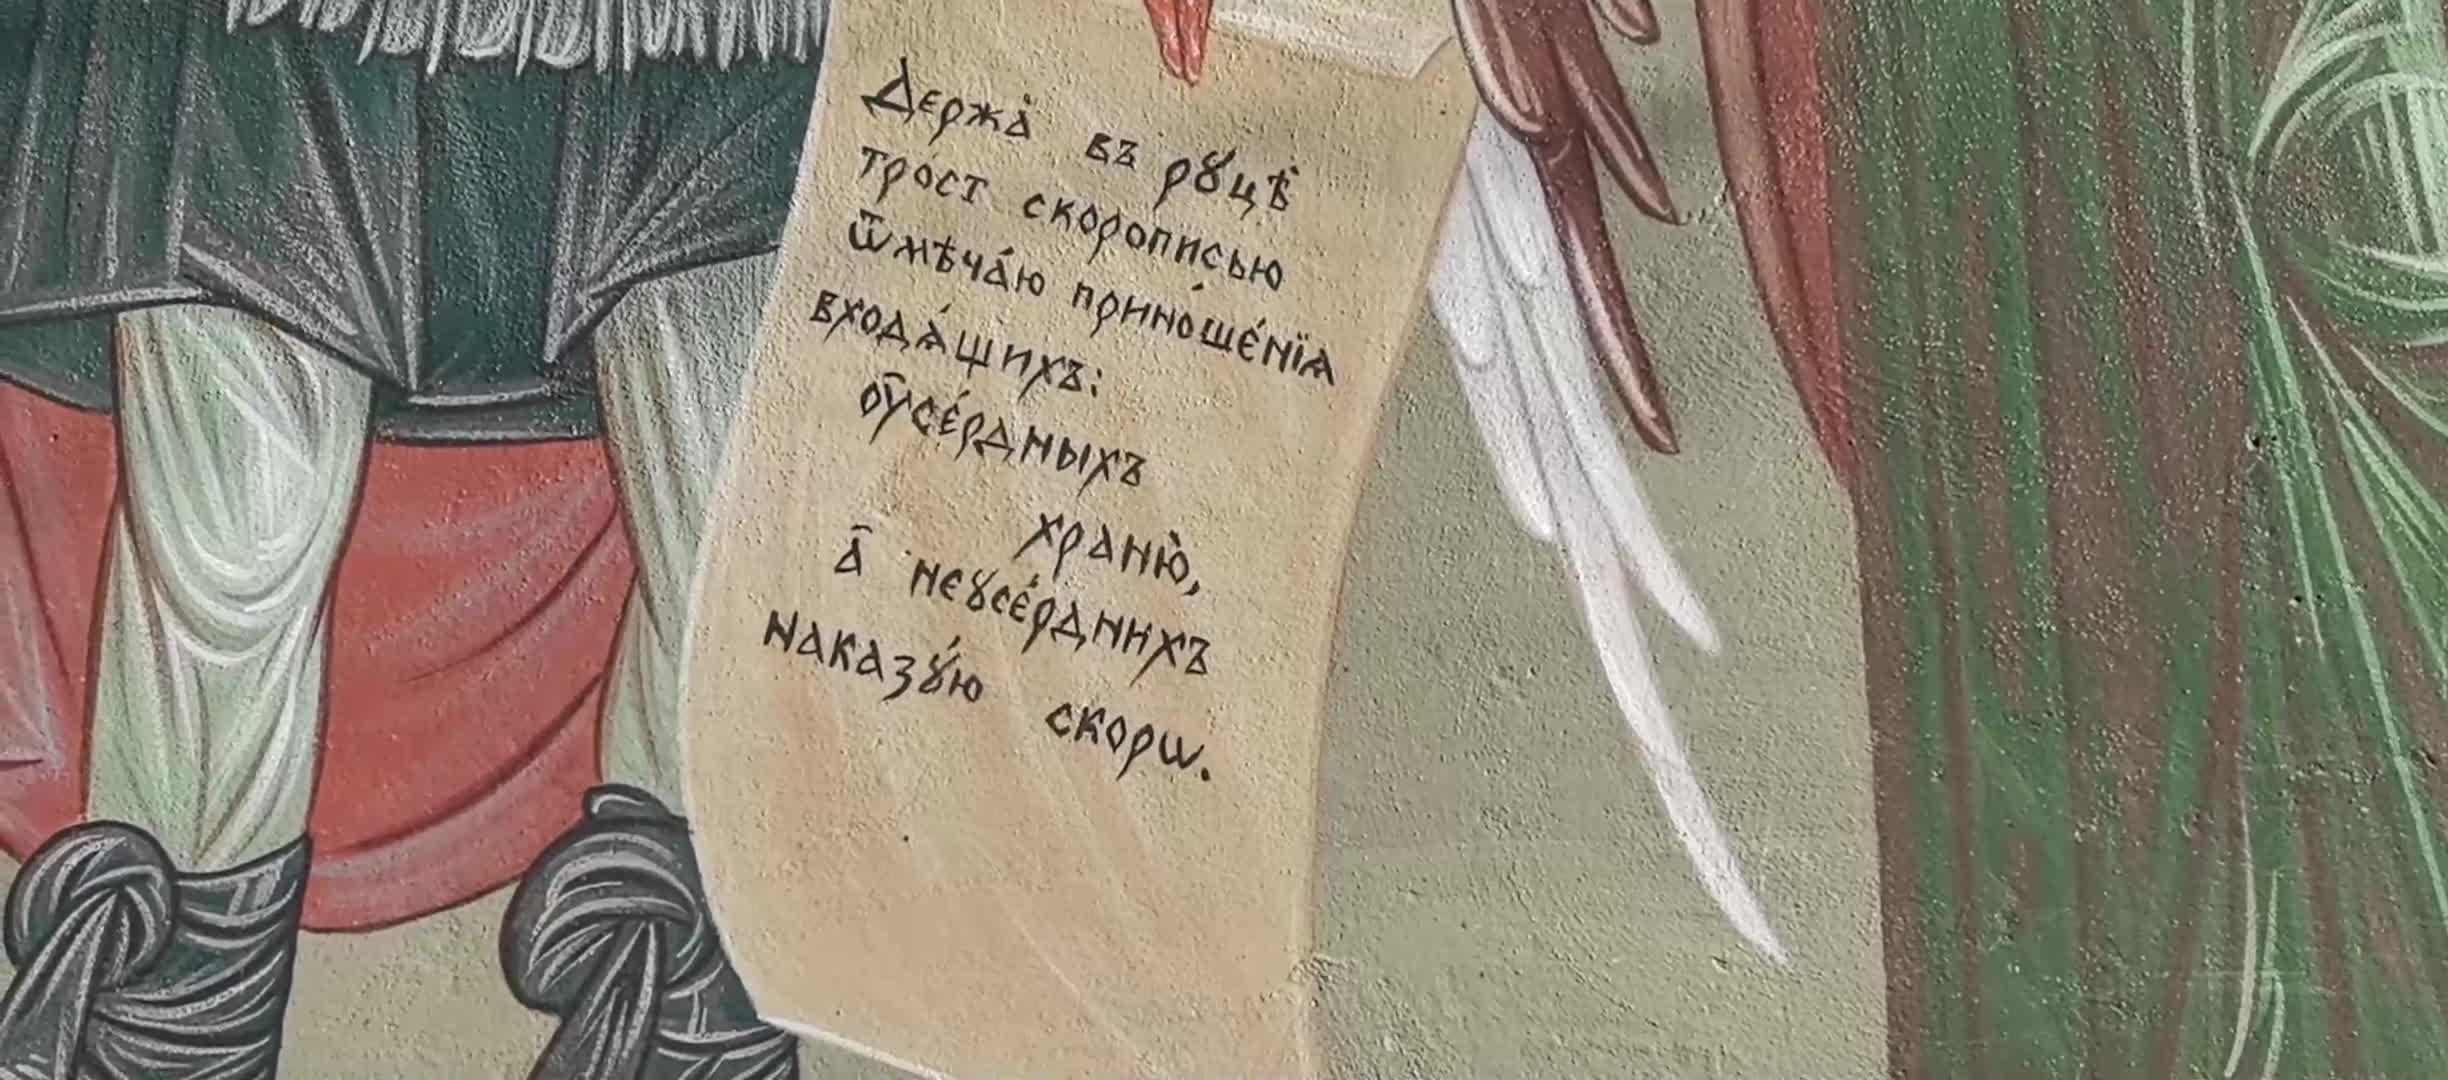 Держѧ̀ въ рꙋцѣ̀
тро́ст скорописью
ѿмѣча́ю прино́ше́нїѧ
входѧ́щихъ:
ѹсе́рдныхъ
храню̀,
а҆ неꙋсе́рднихъ
наказꙋ́ю скорѡ.